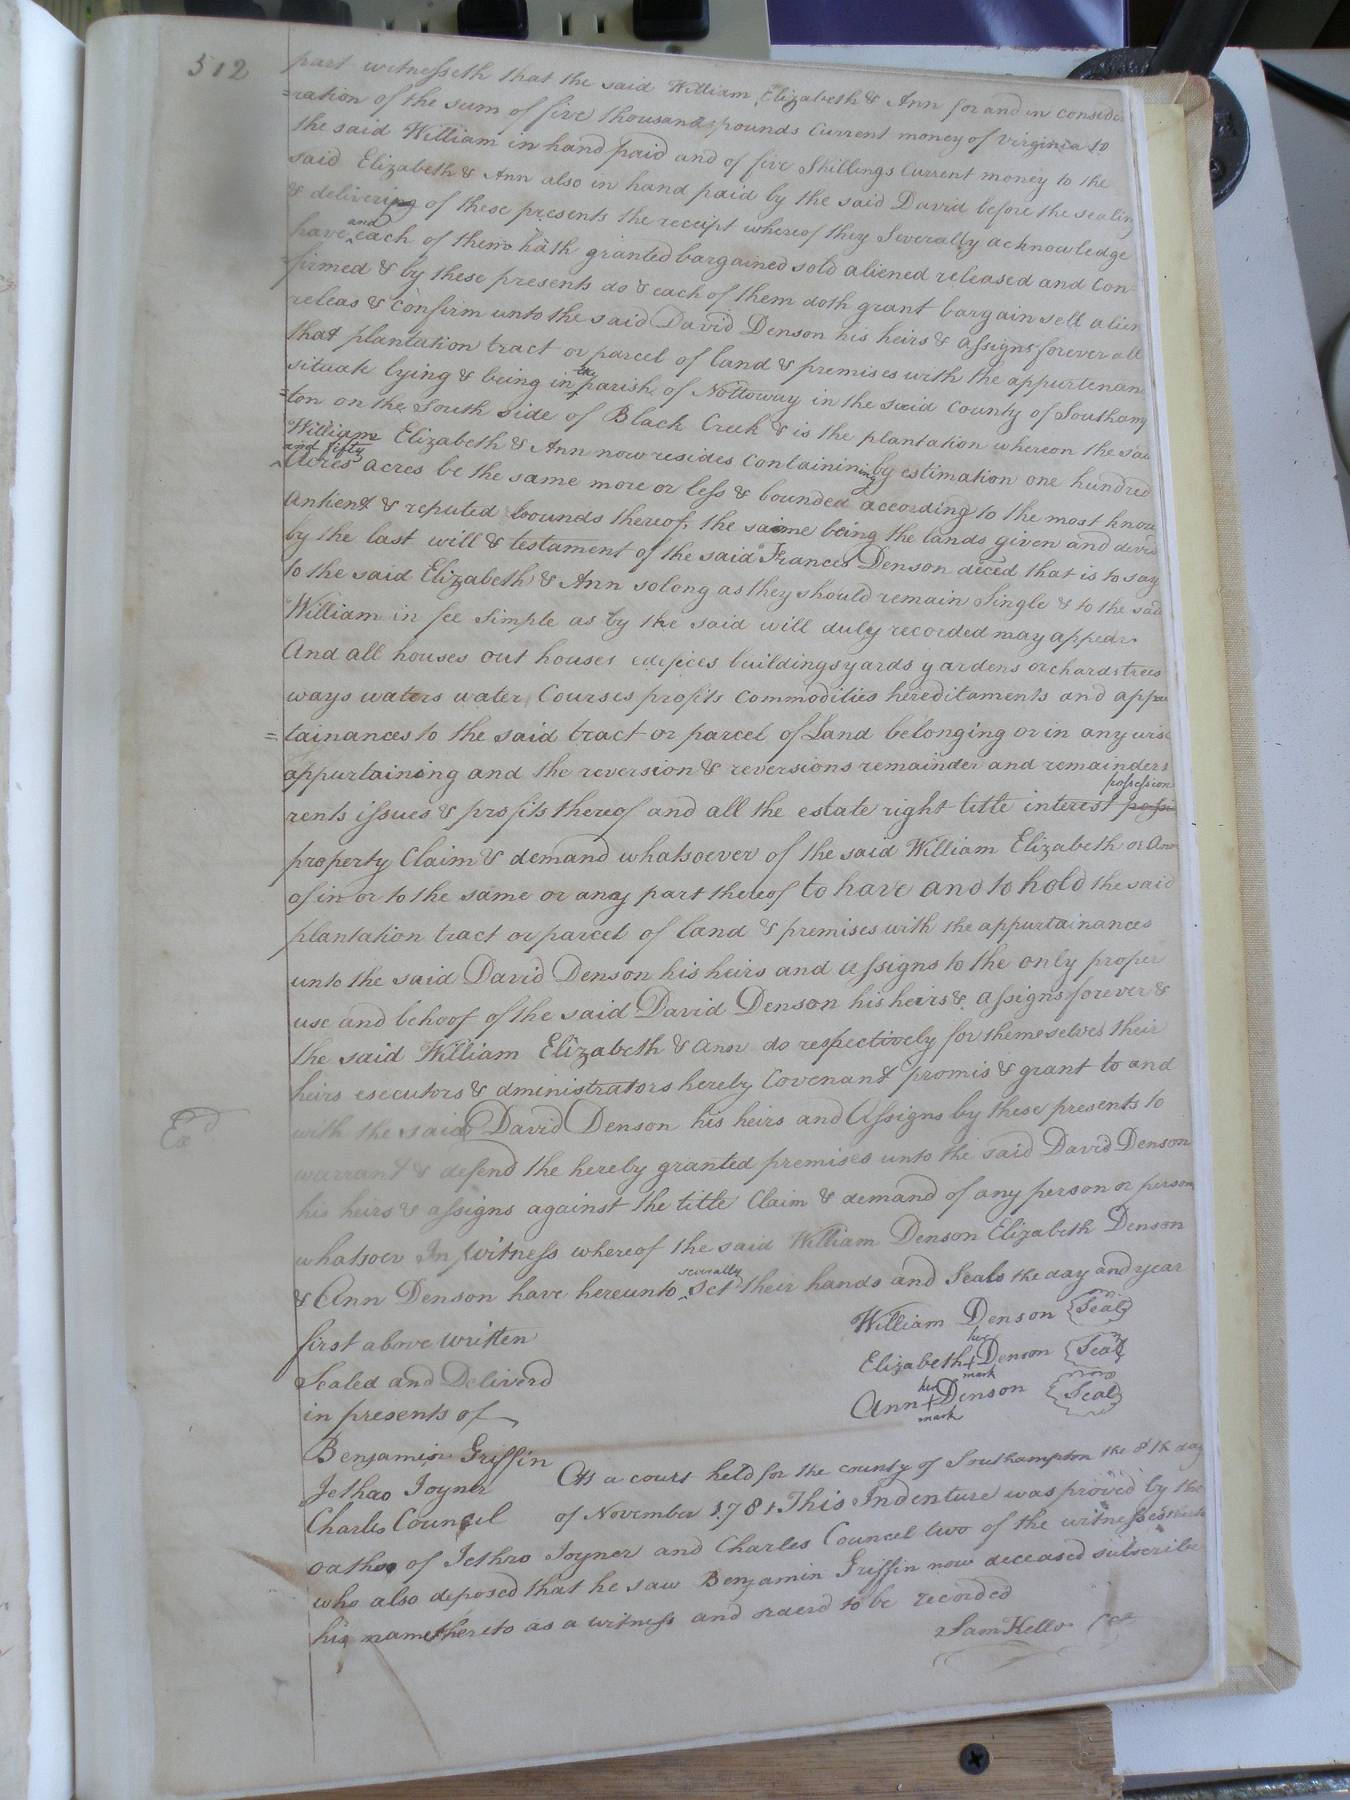 512
part witnesseth that the said William Elizabeth & Ann for and in conside
=ration of the sum of five thousand pounds Current money of Virginia to
the said William in hand paid and of five Shillings Current money to the
said Elizabeth & Ann also in hand paid by the said David before the sealing
& delivering of these presents the receipt whereof they Severally acknowledge
have and each of them hath granted bargained sold aliened released and Con=
=firmed & by these presents do & each of them doth grant bargain sell alien
releas & Confirm unto the said David Denson his heirs & assigns forever all
that plantation tract or parcel of land & premises with the appurtenan
situate lying & being in the parish of Nottoway in the said County of Southamp
=ton on the South side of Black Creek & is the plantation whereon the said
William Elizabeth & Ann now resides Containing by estimation one hundred
and fifty
Acres acres be the same more or less & bounded according to the most know
antient & reputed bounds thereof, the same being the lands given and devis
by the last will & testament of the said Frances Denson deced that is to say
to the said Elizabeth & Ann so long as they should remain Single & to the said
William in fee Simple as by the said will duly recorded may appear
And all houses out houses edefices buildings yards gardens orchards trees
ways waters water Courses profits Commodities hereditaments and appur
=tainances to the said tract or parcel of Land belonging or in any wise
appurtaining and the reversion & reversions remainder and remainders
rents issues & profits thereof and all the estate right title interest possession
property Claim & demand whatsoever of the said William Elizabeth or Ann
of in or to the same or any part thereof to have and to hold the said
plantation tract or parcel of land & premises with the appurtainances
unto the said David Denson his heirs and assigns to the only proper
use and behoof of the said David Denson his heirs & assigns forever &
the said William Elizabeth & Ann do respectively for themselves their
heirs executors & dministrators hereby Covenant promis & grant to and
Exd
with the said David Denson his heirs and Assigns by these presents to
warrant & defend the hereby granted premises unto the said David Denson
his heirs & assigns against the title Claim & demand of any person or person
whatsoev In Witness whereof the said William Denson Elizabeth Denson
& Ann Denson have hereunto severally Set their hands and Seals the day and year
first above written
William Denson Seal
Elizabeth her + mark Denson Seal
Ann her + mark Denson Seal
Sealed and Deliverd
in presents of
Benjamin Griffin
Jethao Joyner
Charles Councel
At a court held for the county of Southampton the 8th day
of November 1781 This Indenture was proved by the
oathe of Jethro Joyner and Charles Councel two of the witnesses
who also deposed that he saw Benjamin Griffin now deceased subscribe
his name thereto as a witness and orderd to be recorded
Sam Kello